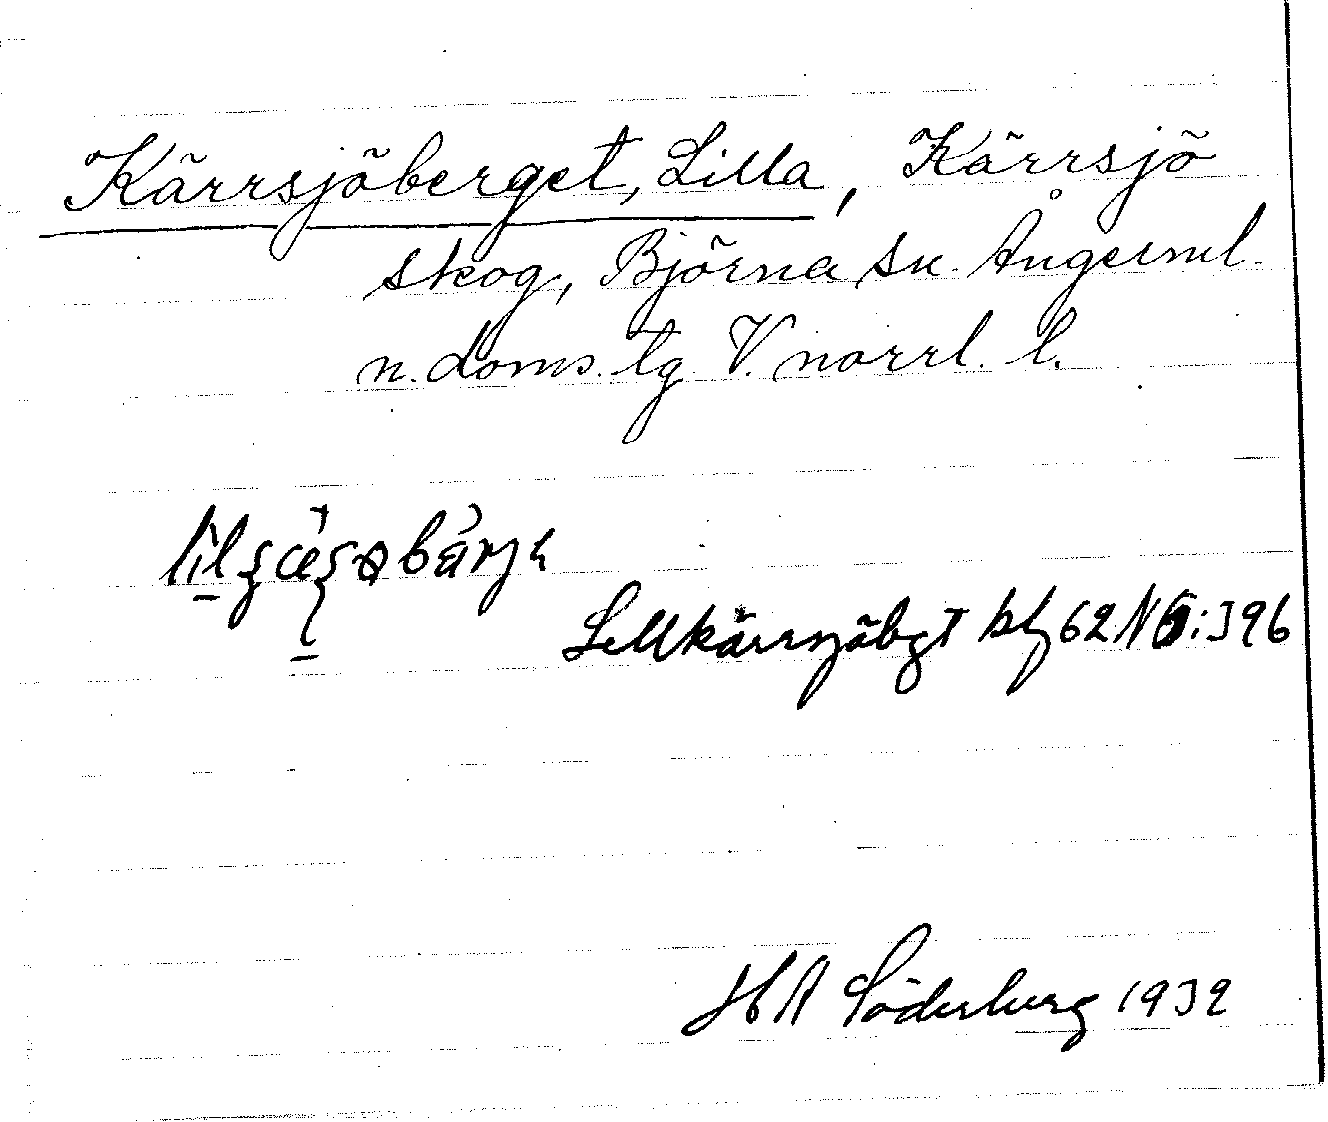 Kärrsjöberget, Lilla, Kärrsjö
skog, Björna sn. Ångerml.
n. doms. lg V. norrl. l.
Lillkärrsjöbgt bl 62 N 5:396
HA Söderberg 1932